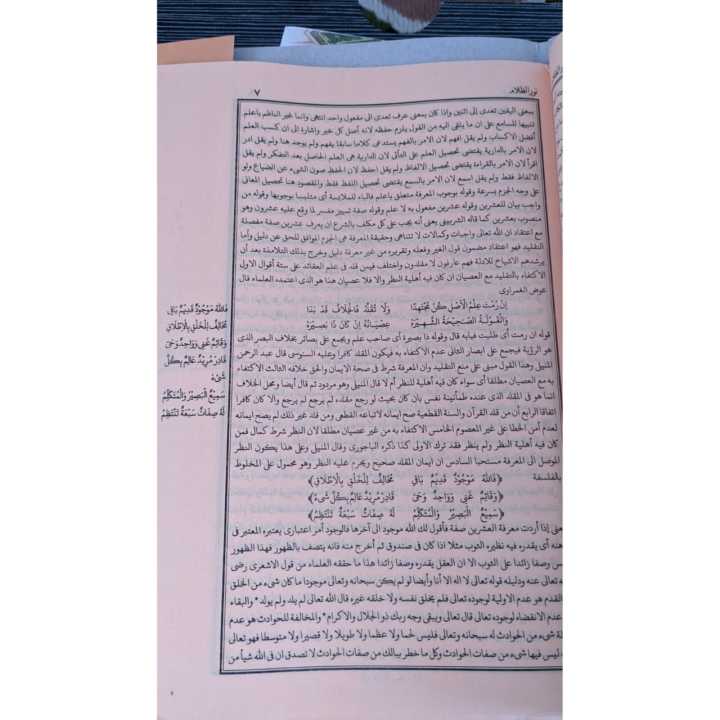 نور الظلام
٧
بمعنى اليقين تعدى الى اثنين واذا كان بمعنى عرف تعدى الى مفعول واحد انتهى وانما غير الناظم باعلم
تنبيها للسامع على ان ما يلقى اليه من القول يلزم حفظه لانه أصل كل خير واشارة الى ان كسب العلم
أفضل الاكساب ولم يقل افهم لان الامر بالفهم يستدعى كلاما سابقا يفهم ولم يوجد هنا ولم يقل ادر
لان الامر بالدارية يقتضى تحصيل العلم على التأنى لان الدارية هى العلم الحاصل بعد التفكر ولم يقل
اقرأ لان الامر بالقراءة يقتضى تحصيل الالفاظ ولم يقل احفظ لان الحفظ صون الشىء عن الضياع ولو
الالفاظ فقط ولم يقل اسمع لان الامر بالسمع يقتضى تحصيل اللفظ فقط والمقصود هنا تحصيل المعانى
على وجه الجزم بسرعة وقوله بوجوب المعرفة متعلق باعلم فالباء للملابسة أى متلبسا بوجوبها وقوله من
واجب بيان للعشرين وقوله عشرين مفعول به لا علم وقوله صفة تمييز مفسر لما وقع عليه عشرون وهو
منصوب بعشرين كما قاله الشربينى يعنى أنه يجب على كل مكلف بالشرع ان يعرف عشرين صفة مفصلة
مع اعتقاد ان الله تعالى واجبات وكمالات لا تتناهى وحقيقة المعرفة هى الجزم الموافق للحق عن دليل وأما
التقليد فهو اعتقاد مضمون قول الغير وفعله وتقريره من غير معرفة دليل وخرج بذلك التلامذة بعد أن
يرشدهم الاشياخ للادلة فهم عارفون لا مقلدون واختلف فيمن قلد فى علم العقائد على ستة أقوال الاول
الاكتفاء بالتقليد مع العصيان ان كان فيه أهلية النظر والا فلا عصيان هذا هو الذى اعتمده العلماء قال
عوض الغمراوى
إن رُمْتَ عِلْمَ الْأَصْلِ كُنْ مُجْتَهِدًا وَلَا تُقَلِّدْ فَالْخِلَافُ قَدْ بَدَا
وَالْقَوْلَةُ الصَّحِيحَةُ الشَّهِيرَةْ عِصْيَانُهُ إِنْ كَانَ ذَا بَصِيرَةْ
قوله ان رمت أى طلبت فبابه قال وقوله ذا بصيرة أى صاحب علم ويجمع على بصائر بخلاف البصر الذى
هو الرؤية فيجمع على ابصار الثانى عدم الاكتفاء به فيكون المقلد كافرا وعليه السنوسى قال عبد الرحمن
المنيلى وهذا القول مبنى على منع التقليد وان المعرفة شرط فى صحة الايمان والحق خلافه الثالث الاكتفاء
به مع العصيان مطلقا أى سواء كان فيه أهلية للنظر أم لا قال المنيلى وهو مردود ثم قال أيضا ومحل الخلاف
انما هو فى المقلد الذى عنده طمأنينة نفس بان كان بحيث لو رجع مقلده لم يرجع لم يرجع والا كان كافرا
اتفاقا الرابع أن من قلد القرآن والسنة القطعية صح ايمانه لاتباعه القطعى ومن قلد غير ذلك لم يصح ايمانه
لعدم أمن الخطا على غير المعصوم الخامس الاكتفاء به من غير عصيان مطلقا لان النظر شرط كمال فمن
كان فيه أهلية النظر ولم ينظر فقد ترك الاولى كذا ذكره الباجورى وقال المنيلى وعلى هذا يكون النظر
الموصل الى المعرفة مستحبا السادس ان ايمان المقلد صحيح ويحرم عليه النظر وهو محمول على المخلوط
بالفلسفة
﴿فَاللهُ مَوْجُودٌ قَدِيمٌ بَاقِى مُخَالِفٌ لِلْخَلْقِ بِالْإِطْلَاقِ﴾
﴿وَقَائِمٌ غَنِى وَوَاحِدٌ وَحَىّ قَادِرْ مُرِيدٌ عَالِمٌ بِكُلِّ شَىْءْ﴾
﴿سَمِيعٌ الْبَصِيرُ وَالْمُتَكَلِّمُ لَهُ صِفَاتٌ سَبْعَةٌ تَنْتَظِمُ﴾
عنى إذا أردت معرفة العشرين صفة فأقول لك الله موجود الى آخرها فالوجود أمر اعتبارى يعتبره المعتبر فى
هنه أى يقدره فيه نظيره الثوب مثلا اذا كان فى صندوق ثم أخرج منه فانه يتصف بالظهور فهذا الظهور
س وصفا زائدا على الثوب الا ان العقل يقدره وصفا زائدا هذا ما حققه العلماء من قول الاشعرى رضى
ه تعالى عنه ودليله قوله تعالى لا اله الا أنا وأيضا لو لم يكن سبحانه وتعالى موجودا ما كان شىء من الخلق
القدم هو عدم الاولية لوجوده تعالى فلم يخلق نفسه ولا خلقه غيره قال الله تعالى لم يلد ولم يولد * والبقاء
عدم الانقضاء لوجوده تعالى قال تعالى ويبقى وجه ربك ذو الجلال والاكرام * والمخالفة للحوادث هو عدم
لة شىء من الحوادث له سبحانه وتعالى فليس لحما ولا عظما ولا طويلا ولا قصيرا ولا متوسطا فهو تعالى
ليس فيها شىء من صفات الحوادث وكل ما خطر ببالك من صفات الحوادث لا تصدق ان فى الله شيأ من
فَاللهُ مَوْجُودٌ قَدِيمٌ بَاقِى
مُخَالِفٌ لِلْخَلْقِ بِالْإِطْلَاقِ
وَقَائِمٌ غَنِى وَوَاحِدٌ وَحَىّ
قَادِرْ مُرِيدٌ عَالِمٌ بِكُلِّ
شَىْءْ
سَمِيعٌ الْبَصِيرُ وَالْمُتَكَلِّمُ
لَهُ صِفَاتٌ سَبْعَةٌ تَنْتَظِمُ